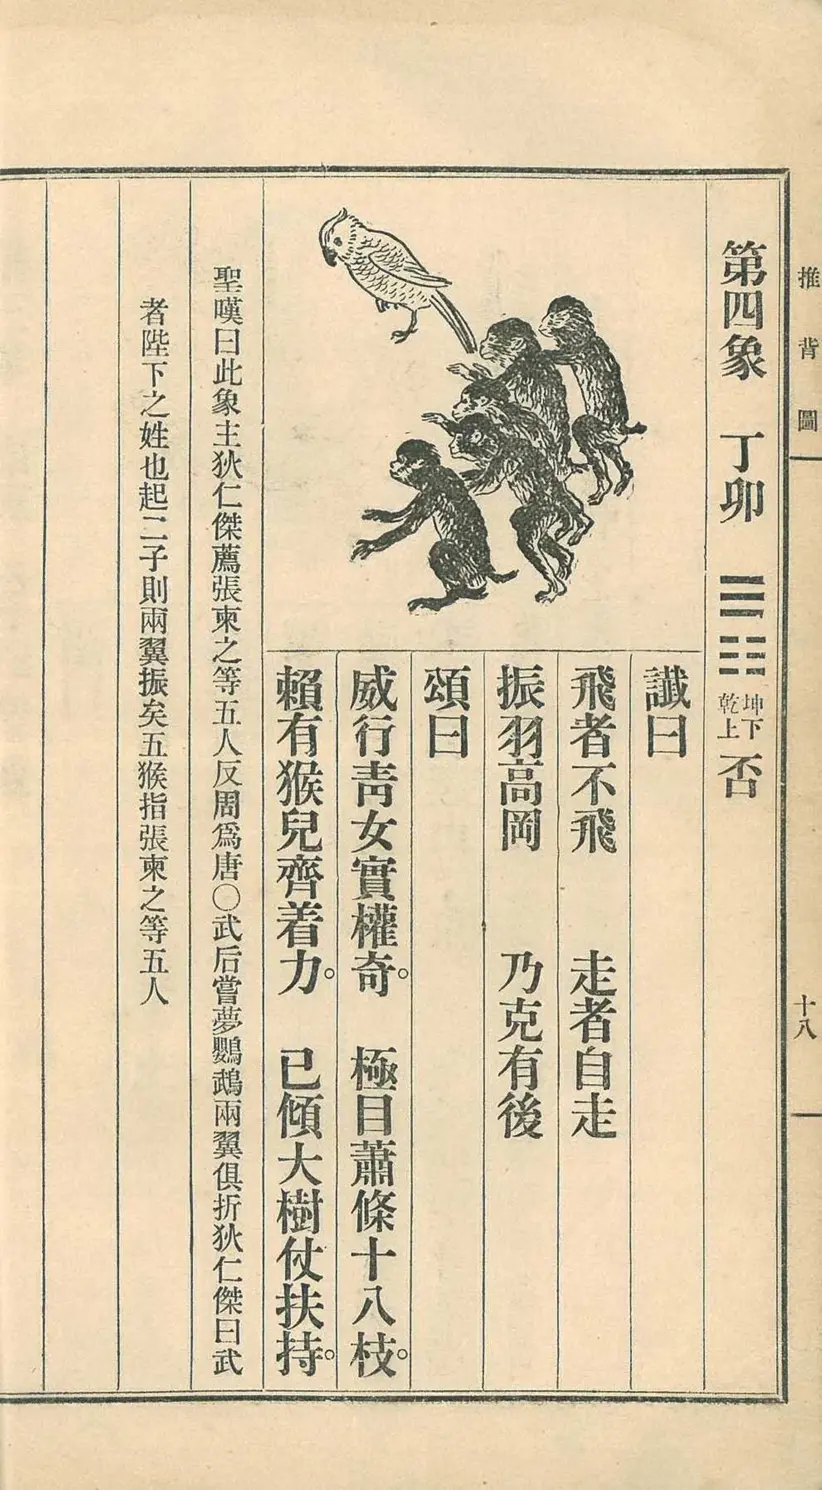 推背圖
十八
第四象 丁卯 ䷋ 坤下乾上 否
讖曰
飛者不飛 走者自走
振羽高岡 乃克有後
頌曰
威行靑女實權奇。 極目蕭條十八枝。
賴有猴兒齊着力。 已傾大樹仗扶持。
聖嘆曰此象主狄仁傑薦張柬之等五人反周爲唐〇武后嘗夢鸚鵡兩翼俱折狄仁傑曰武
者陛下之姓也起二子則兩翼振矣五猴指張柬之等五人